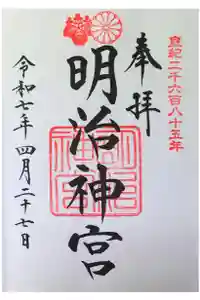 皇紀二千六百八十五年
奉拝
明治神宮
令和七年四月二十七日